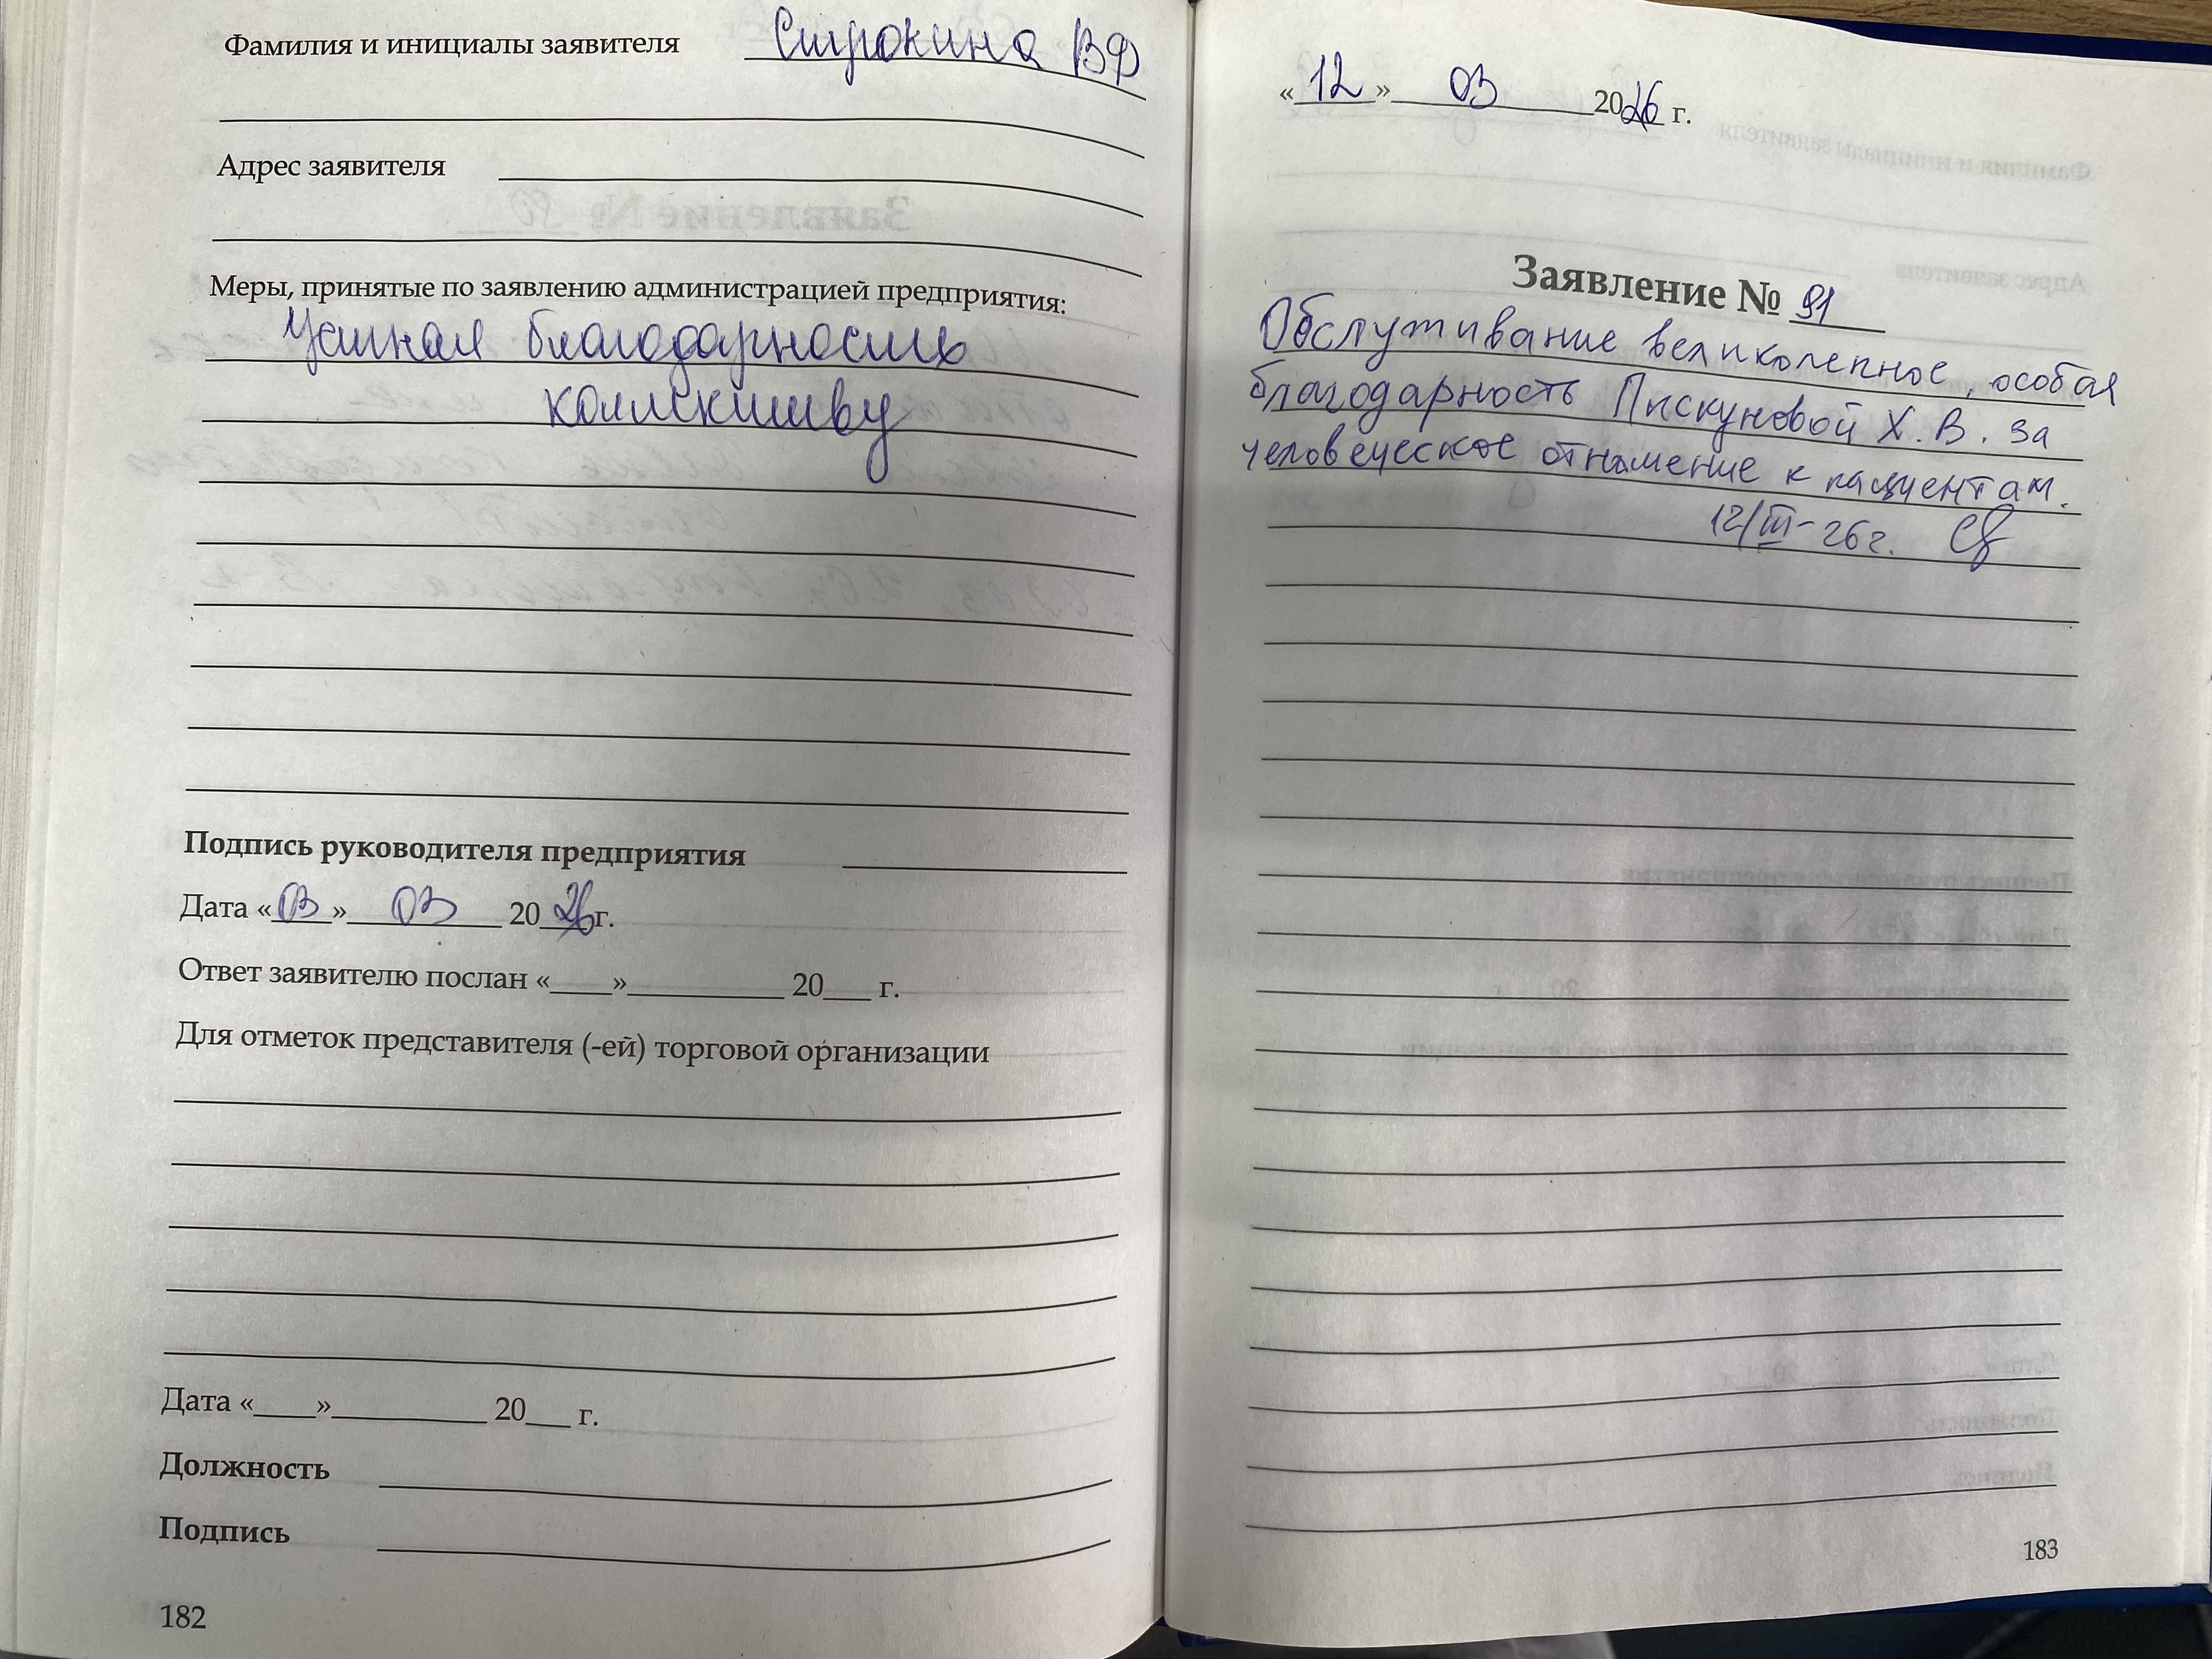 Фамилия и инициалы заявителя Строкина ВФ
Адрес заявителя
Меры, принятые по заявлению администрацией предприятия:
Устная благодарность
коллективу
Подпись руководителя предприятия
Дата «03» 03 2026г.
Ответ заявителю послан «____»__________ 20___ г.
Для отметок представителя (-ей) торговой организации
Дата «____»__________ 20___ г.
Должность
Подпись
182
«12» 03 2026 г.
Заявление № 91
Обслуживание великолепное, особая
благодарность Пискуновой Х.В. за
человеческое отношение к пациентам.
12/III-26г.
183